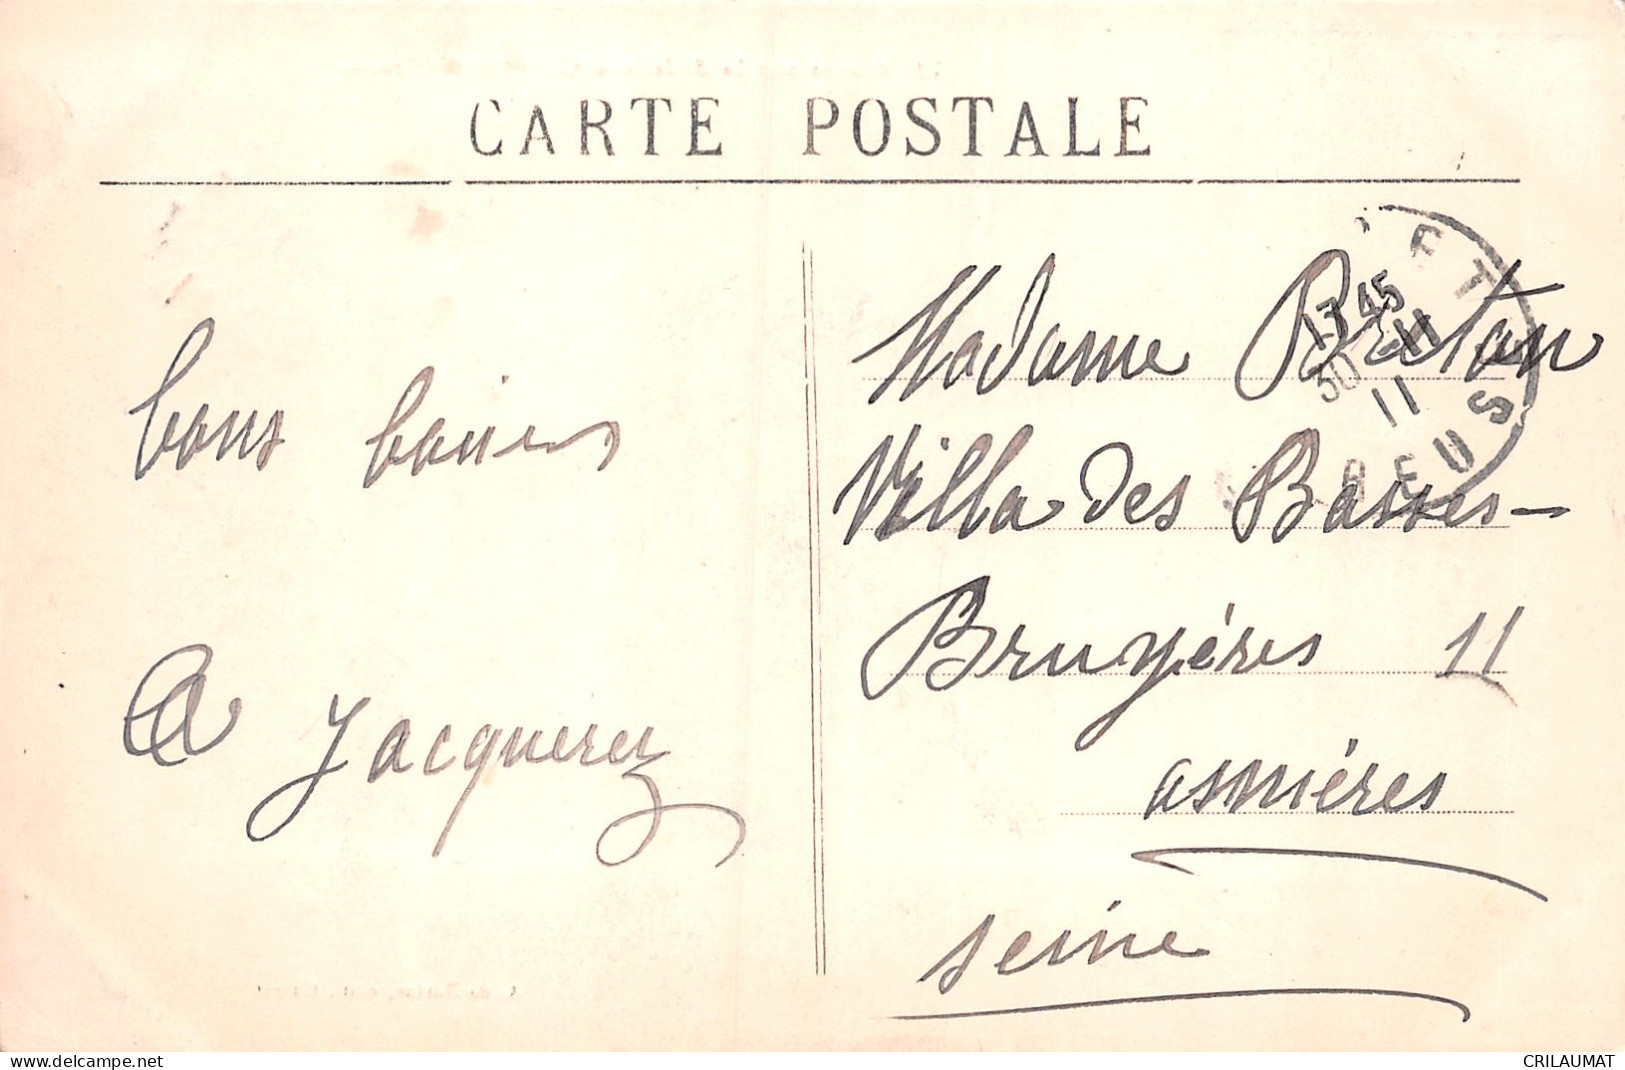 CARTE POSTALE
bons baisers
A Jacquerez
Madame Bretan
Villa des Basses-
Bruyéres 11
asniéres
seine
17 45
30 11
11
CREUSE
www.delcampe.net
CRILAUMAT